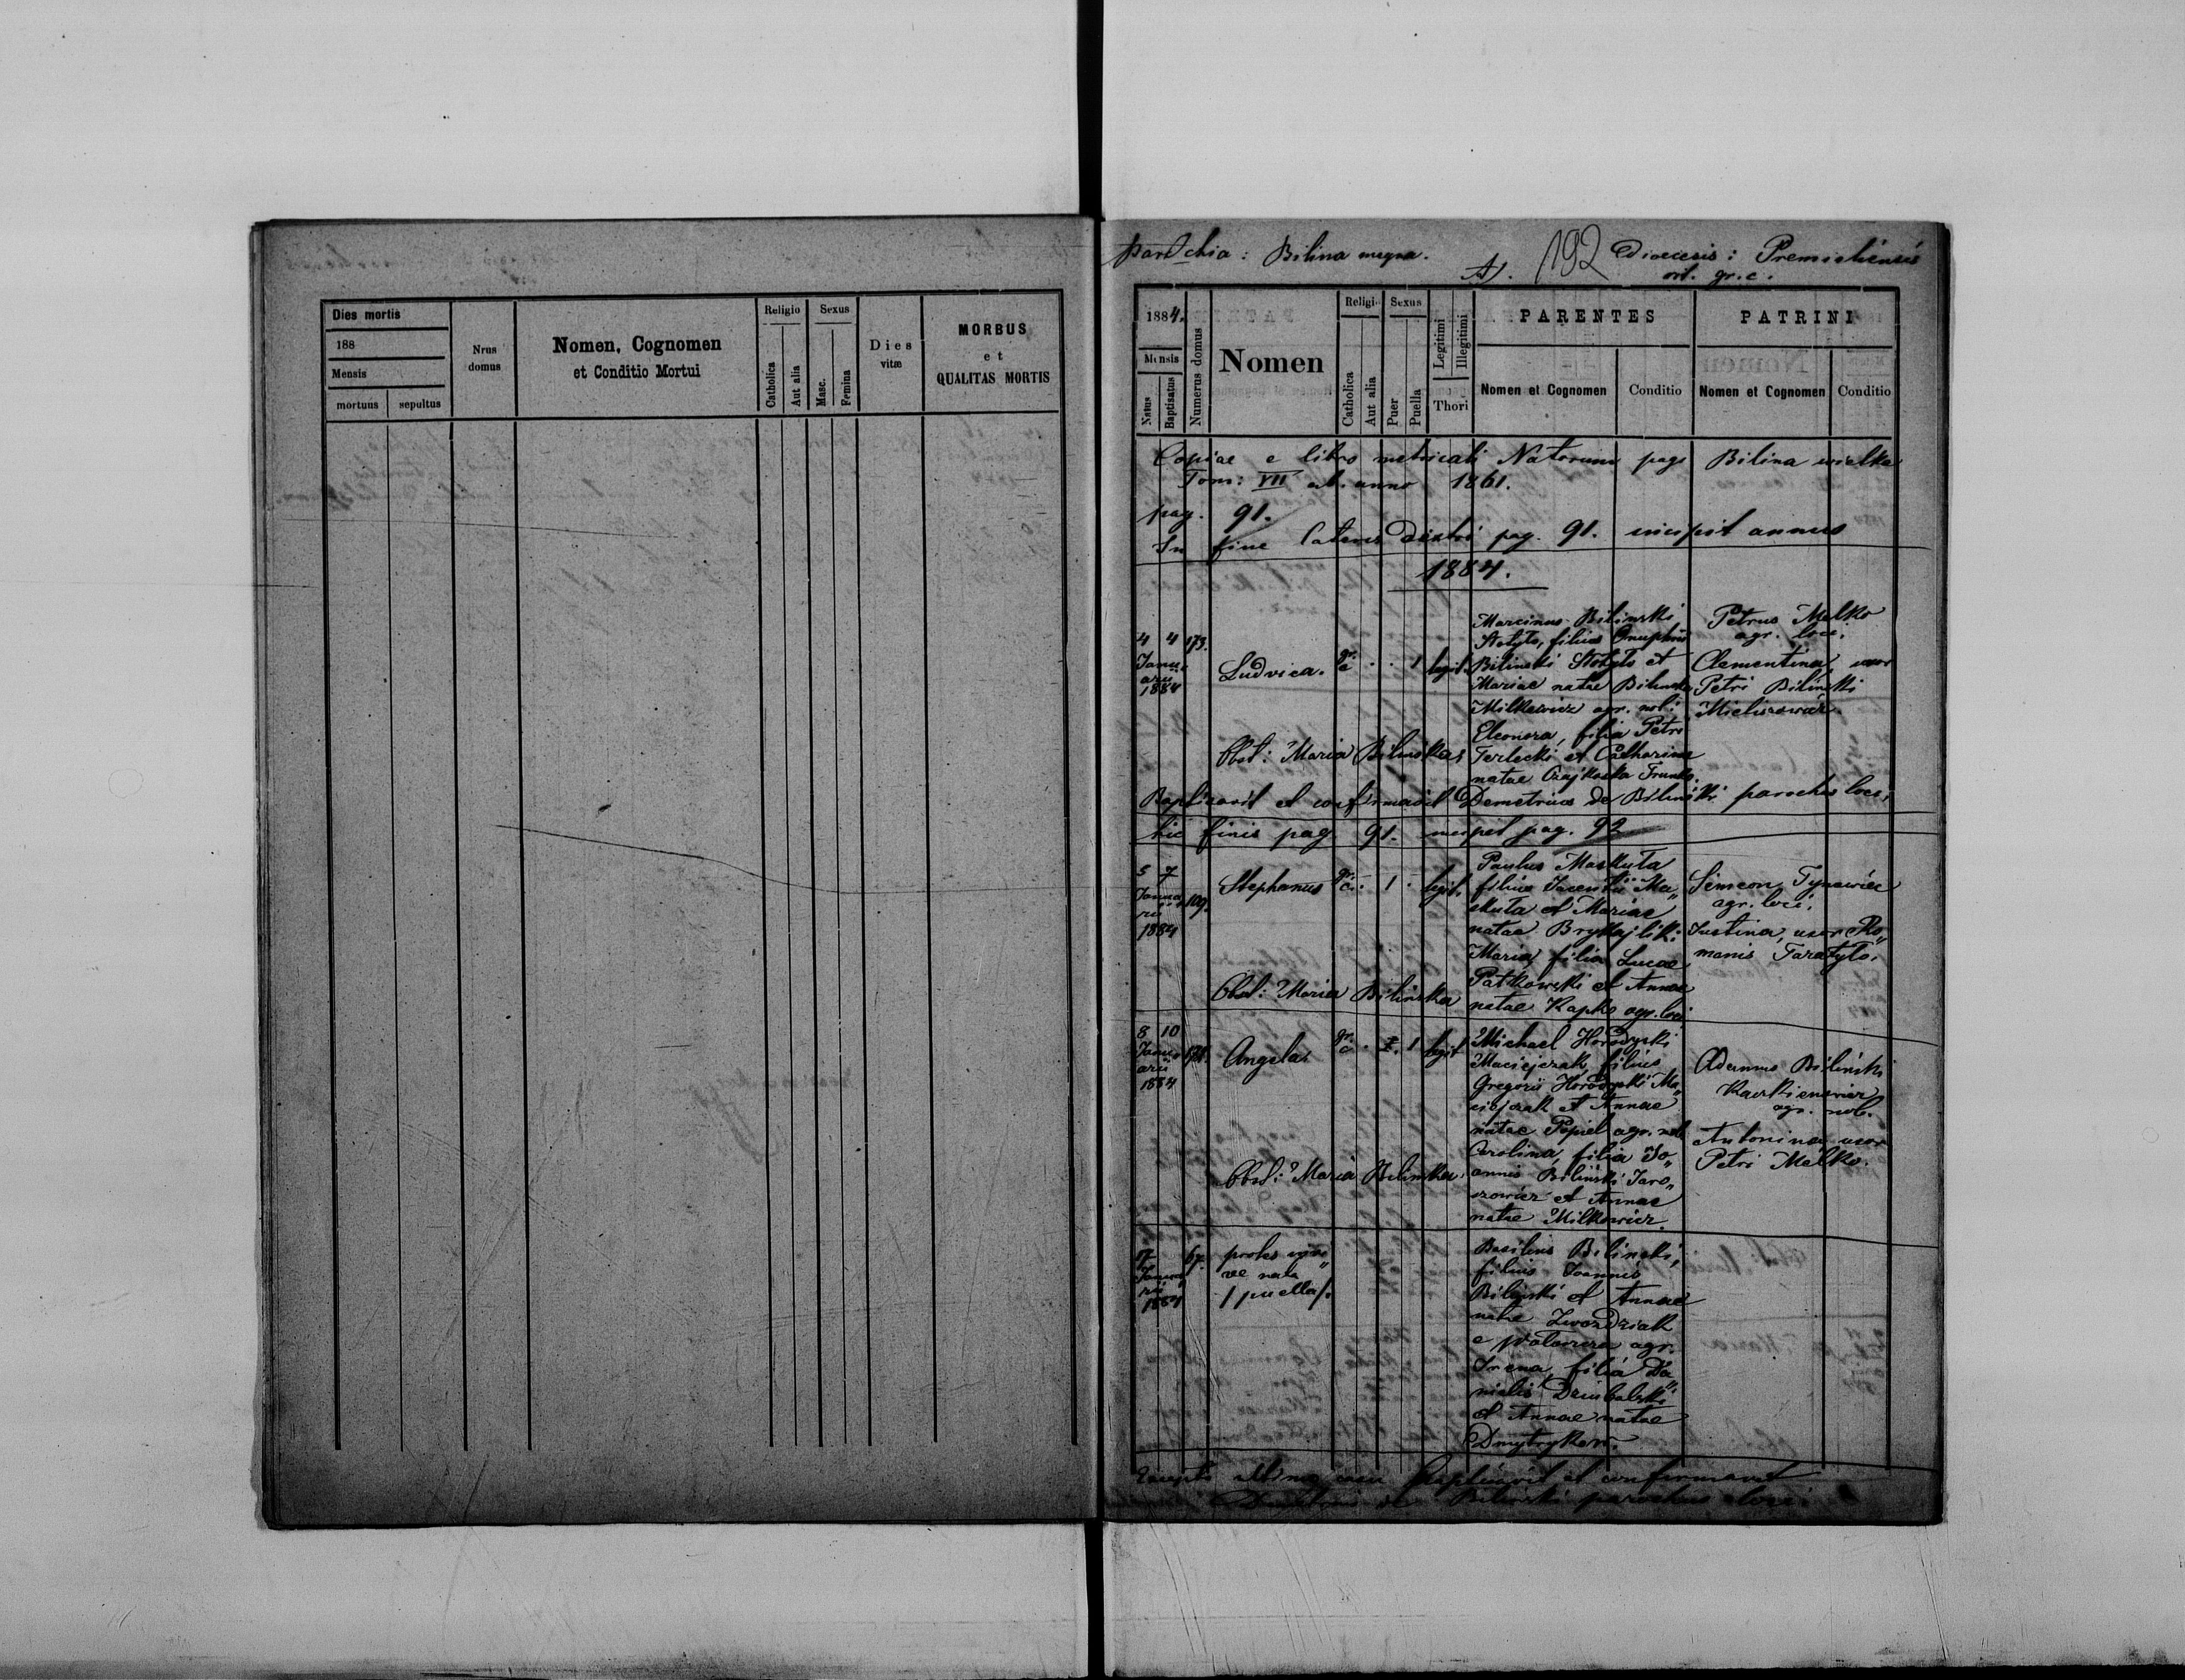 Dies mortis
188
Mensis
mortuus sepultus
Nrus domus
Nomen, Cognomen
et Conditio Mortui
Religio
Catholica
Aut alia
Sexus
Masc.
Femina
Dies
vitæ
MORBUS
et
QUALITAS MORTIS
Parochia: Bilina magna.
A). 192 Dioecesis: Premisliensis
rit. gr. c.
1884.
Mensis
Natus
Baptisatus
Numerus domus
Nomen
Religio
Catholica
Aut alia
Sexus
Puer
Puella
Legitimi
Illegitimi
Thori
PARENTES
Nomen et Cognomen
Conditio
PATRINI
Nomen et Cognomen
Conditio
Copiae e libro metricali Natorum pagi Bilina wielka
Tom: VII ab. anno 1861.
pag. 91.
In fine pag. 91. incipit annus
1884.
4 4 173.
Janu-
arii
1884
Ludvica. gr. c. . . 1 legit.
Marcinus Bilinski
Stotyło, filius Onuphrii
Bilinski Stotyło et
Mariae natae Bilinska
Milkewicz agr. nob:
Eleonora, filia Petri
Terlecki et Catharinae
natae Czajkoska
Petrus Melko
agr. loci.
Clementina, uxor
Petri Bilinski
Obst: Maria Bilinska
Baptisavit et confirmavit Demetrius de Bilinski parochus loci.
hic finis pag. 91. incipit pag. 92
5 7
Janua
rii
1884
109.
Stephanus gr. c. . 1 . legit.
Paulus Maskuta
filius Ma„
skuta et Mariae
natae
Maria, filia Lucae
Patkowski et Annae
natae Kapko agr. loci
Simeon Tynowiec
agr. loci.
Justina, uxor Ro„
manis
Obst: Maria Bilinska
8 10
Janu-
arii
1884
Angela gr. c . 1 legit
Michael Horodyski
Maciejczak, filius
Gregorii Horodyski Ma„
ciejczak et Annae
natae Popiel agr. nob
Carolina, filia Jo„
annis Bilinski Jaro„
szowicz et Annae
natae Milkowicz.
Adamus Bilinski
agr. nob.
Antonina uxor
Petri Melko.
Obst: Maria Bilinska.
17
Janua
rii
1884
67.
proles
nata
/puella/.
Basilius Bilinski,
filius Joannis
Bilinski et Annae
natae Zwozdziak
e agr.
Irena, filia Da„
nielis
et Annae natae
Dmytryków.
Excepto ultimo casu baptisavit et confirmavit
Demetrius de Bilinski parochus loci.